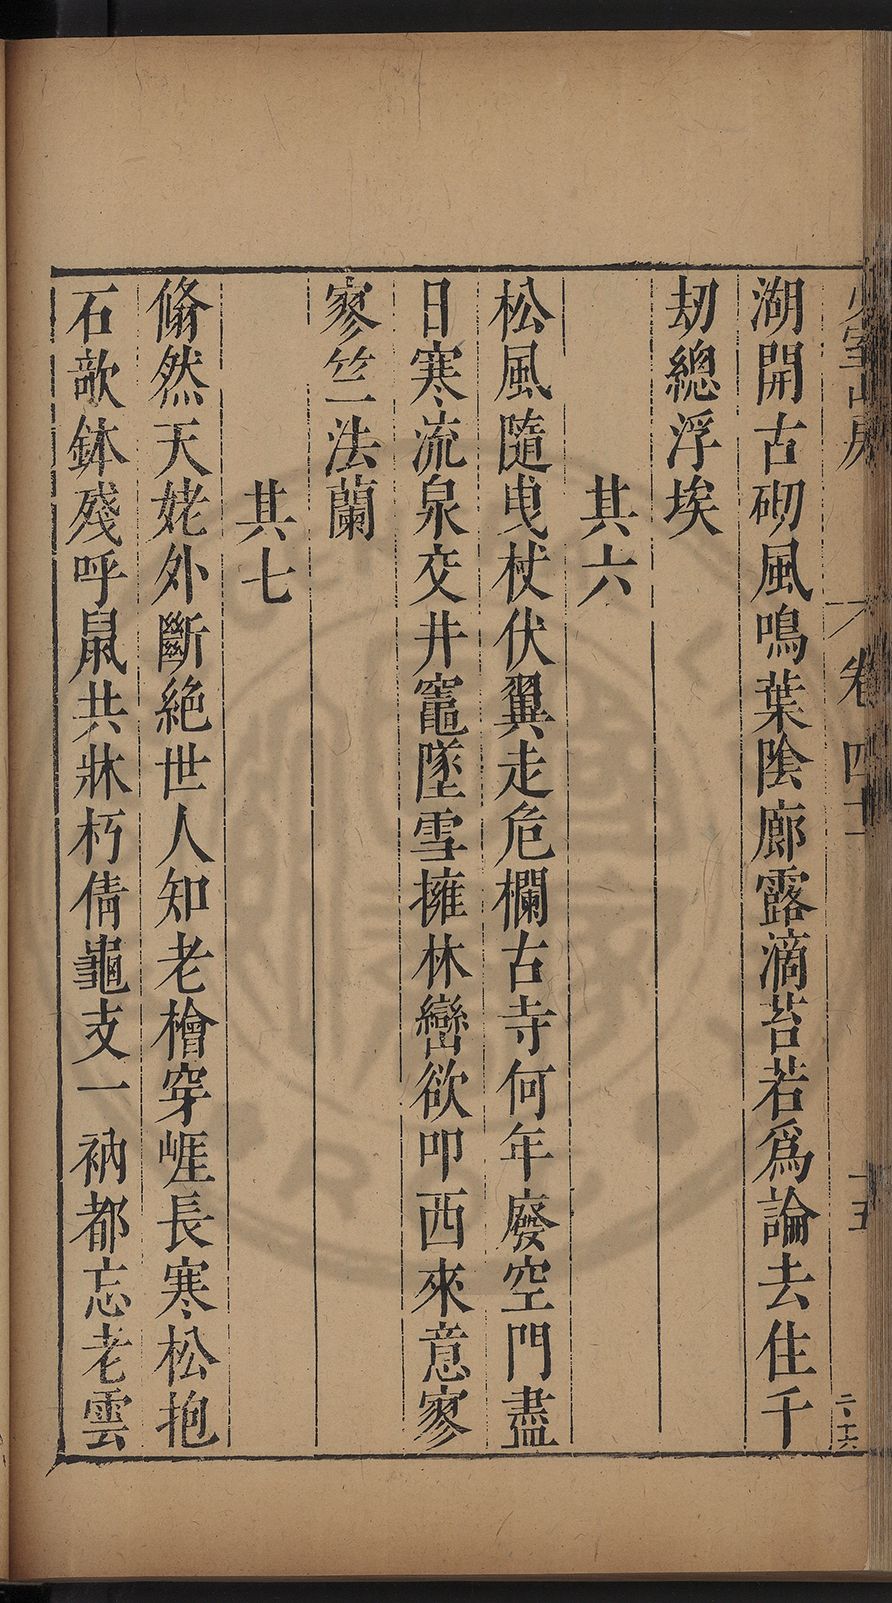 湖開古砌風鳴葉陰廊露滴苔若爲論去住千
劫總浮埃
其六
松風隨曳杖伏翼走危欄古寺何年廢空門盡
日寒流泉交井竈墜雪擁林巒欲叩西來意寥
寥竺法蘭
其七
翛然天姥外斷絶世人知老檜穿崕長寒松抱
石欹鉢殘呼鼠共牀朽倩龜支一衲都忘老雲
室山房
卷四十
十五
二、十六